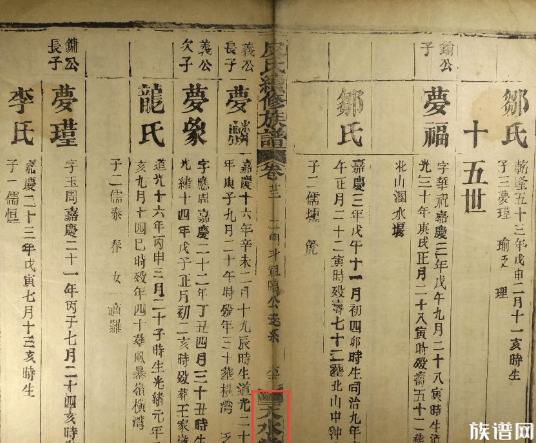 鄒氏
乾隆五十三年戊申二月十一亥時生
子三夢瑾 瑜 理
十五世
鏞公
子
夢福
字華祝嘉慶三年戊午九月二十八寅時生道
光三十年庚戌正月二十八寅時歿壽五十三
北山溷水壋
鄒氏
嘉慶三年戊午十一月初四卯時生同治九年
午正月二十二寅時歿壽七十三葬北山中鐘
子二儒
氏續修族譜
卷
天水
義公
長子
夢麟
嘉慶十六年辛未二月十九辰時生道光二十
年庚子九月二十午時歿年三十葬橫灣
義公
次子
夢象
字應周嘉慶二十二年丁丑四月三十丑時生
光緒十四年戊子正月初二亥時歿葬王家
龍氏
道光十六年丙申三月二十子時生光緒元年
亥九月十四巳時歿年四十葬風暴嶺橫灣
子二儒泰 春 女 適羅
鏞公
長子
夢瑾
字玉周嘉慶二十一年丙子七月二十二亥時
李氏
嘉慶二十三年戊寅七月十三亥時生
子一儒恒
族谱网